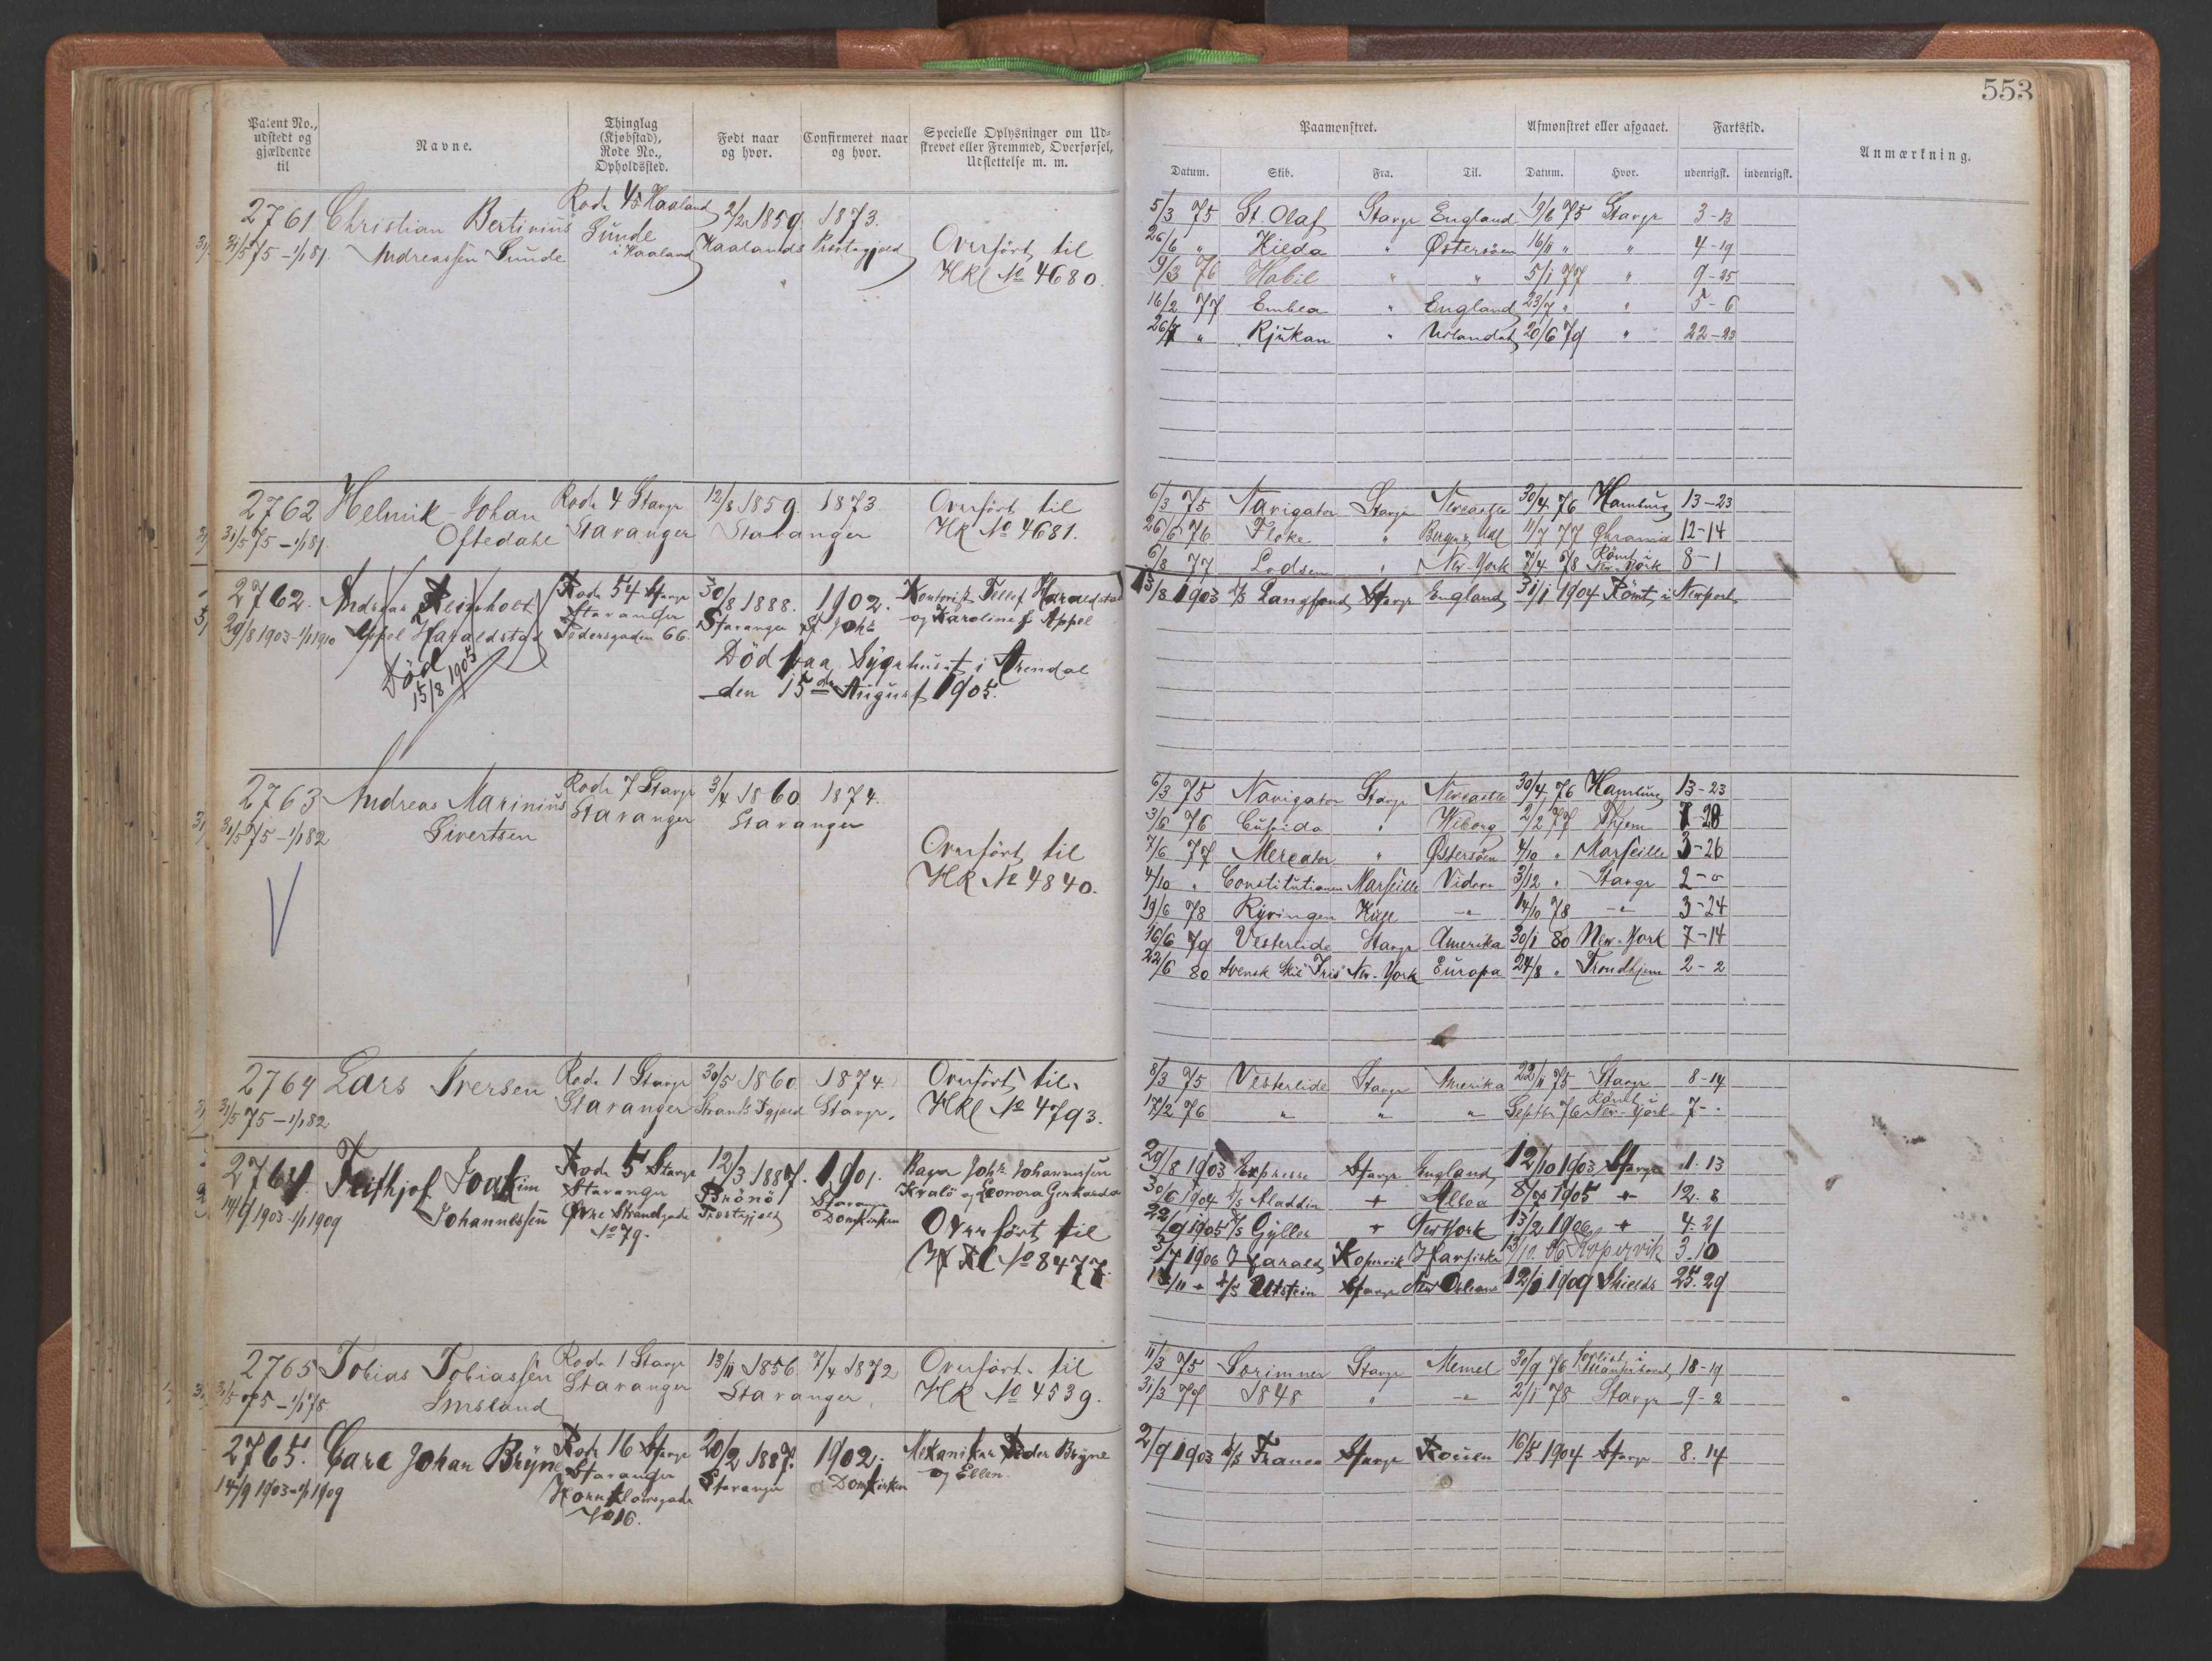 553
Patent No., udstedt og gjældende til
Navne.
Thinglag (Kjøbstad), Rode No., Opholdssted.
Født naar og hvor.
Confirmeret naar og hvor.
Specielle Oplysninger om Udskrevet eller Fremmed, Overførsel, Udslettelse m. m.
Paamønstret.
Afmønstret eller afgaaet.
Fartstid.
Anmærkning.
Datum. Skib. Fra. Til. Datum. Hvor. udenrigsk. indenrigsk.
2761 Christian Bertinius Rode 45 Haaland 2/2 1859. 1873.
31/5 75 – 1/1 81. Andreassen Sunde Sunde i Haaland Haalands Præstegjeld
Overført til
HRl No 4680.
5/3 75 St. Olaf Stavgr England 19/6 75 Stavgr 3-13
26/6 " Hilda " Østersöen 16/11 " " 4-19
9/3 76 Habil " " 5/1 77 " 9-25
16/2 77 Embla " England 23/7 " " 5-6
26/7 " Rjukan " Udlandet 20/6 79 " 22-23
2762 Helmik Johan Rode 4 Stavgr 12/8 1859. 1873. Overført til
31/5 75 – 1/1 81. Oftedahl Stavanger Stavanger HR No 4681.
6/3 75 Navigator Stavgr Newcastle 30/4 76 Hamburg 13-23
26/6 76 Floke " Bergen & Udl 11/7 77 Chrania 12-14
6/8 77 Lodsen " New-York 7/4 78 Rømt i New-York 8-1
2762. Andreas Reinholt Rode 54 Stavgr 30/8 1888. 1902. Kontorist Tellef Haraldstad
29/8 1903-1/1 1910 Appel Haraldstad Stavanger Stavanger St. Joh. og Karoline f. Appel
Pedersgaden 66.
Död 15/8 1905
Död paa Sygehuset i Arendal
den 15de August 1905.
13/8 1903 D/S Langfond Stavgr England 31/1 1904 Römt i Newport
2763 Andreas Marinius Rode 7 Stavgr 3/4 1860 1874.
31/5 75 – 1/1 82 Sivertsen Stavanger Stavanger
Overført til
HR No 4840.
6/3 75 Navigator Stavgr Newcastle 30/4 76 Hamburg 13-23
3/6 76 " Wiborg 2/2 77 Thjem 7-28
7/6 77 Mercator " Østersöen 4/10 " Marseille 3-26
4/10 " Constitutionen Marseille Videre 3/12 " Stavgr 2-0
19/6 78 Ryvingen Hull -"- 14/10 78 -"- 3-24
16/6 79 Vesterlide Stavgr Amerika 30/1 80 New-York 7-14
22/6 80 Svensk Skib Iris New-York Europa 24/8 " Trondhjem 2-2
2764 Lars Iversen Rode 1 Stavgr 30/5 1860 1874. Overført til
31/5 75 – 1/1 82 Stavanger Strands Pgjeld Stavgr. HRl No 4793.
8/3 75 Vesterlide Stavgr Amerika 22/11 75 Stavgr 8-14
17/2 76 " " " Septbr 76 Rømt i New-York 7-"
2764. Frithjof Joakim Rode 5 Stavgr 12/3 1887. 1901. Bager Johs Johannessen
14/9 1903-1/1 1909 Johannessen Stavanger Brönö Præstegjeld Stavanger Domkirken Kvalö og Leonora Gerharda
Övre Strandgade No 79.
Overført til
HRl No 8477.
29/8 1903 Expresse Stavgr England 12/10 1903 Stavgr 1.13
30/6 1904 D/S Aladdin + Alloa 8/7 1905 + 12.8
22/9 1905 D/S Gyller + New York 13/2 1906 + 4.21
3/7 1906 J Harald Kopervik Havfiske 13/10. 06 Kopervik 3.10
14/11 + D/S Utstein Stavgr New Orleans 12/1 1909 Shields 25.29
2765 Tobias Tobiassen Rode 1 Stavgr 13/11 1856 7/4 1872 Overført til
31/5 75 – 1/1 78. Imsland Stavanger Stavanger, HR No 4539.
11/3 75 Sorimner Stavgr Memel 30/9 76 Forlist i 18-19
31/3 77 1848 " -"- 2/1 78 Stavgr 9-2
2765. Carl Johan Bryne Rode 16 Stavgr 20/2 1887. 1902. Mekaniker Peder Bryne
14/9 1903-1/1 1909 Stavanger Stavanger i Domkirken og Ellen.
Hornklovesgade
No 16.
2/9 1903 D/S Franca Stavgr Rouen 16/5 1904 Stavgr 8.14